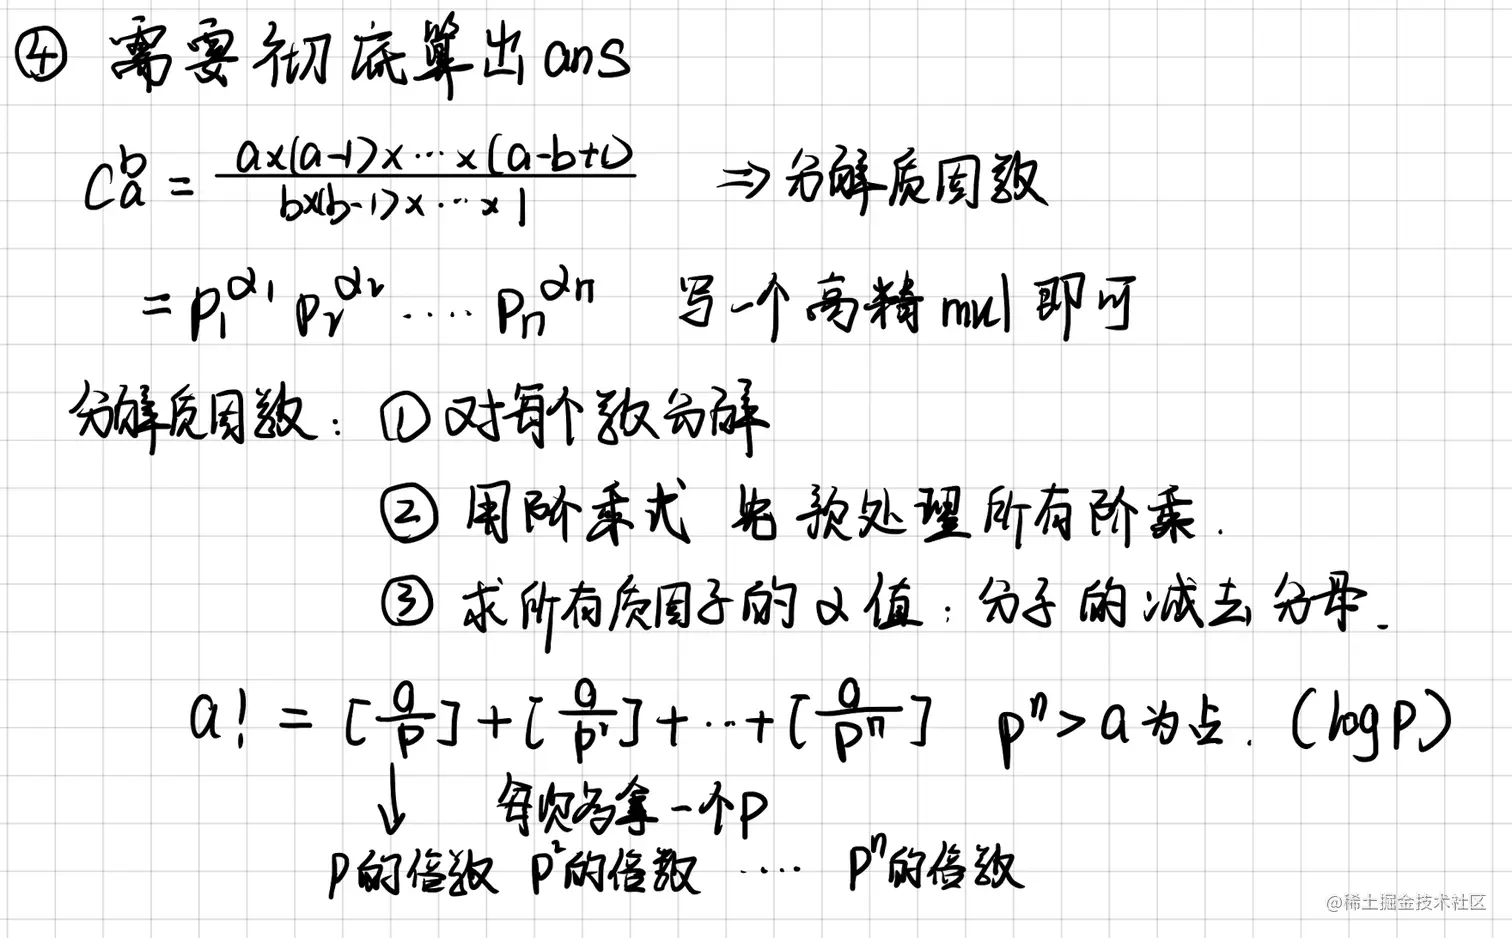 ④ 需要彻底算出ans
C_a^b = \frac{a×(a-1)×⋯×(a-b+1)}{b×(b-1)×⋯×1} ⇒ 分解质因数
= P_1^{α_1} P_2^{α_2} ⋯⋯ P_n^{α_n} 写一个高精mul即可
分解质因数: ① 对每个数分解
② 用阶乘式 先预处理所有阶乘.
③ 求所有质因子的α值: 分子的减去分母.
a! = [\frac{a}{p}] + [\frac{a}{p^2}] + ⋯ + [\frac{a}{p^n}] p^n > a 为止. (log P)
↓ 每次多拿一个P
P的倍数 P^2的倍数 ⋯⋯ P^n的倍数
@稀土掘金技术社区